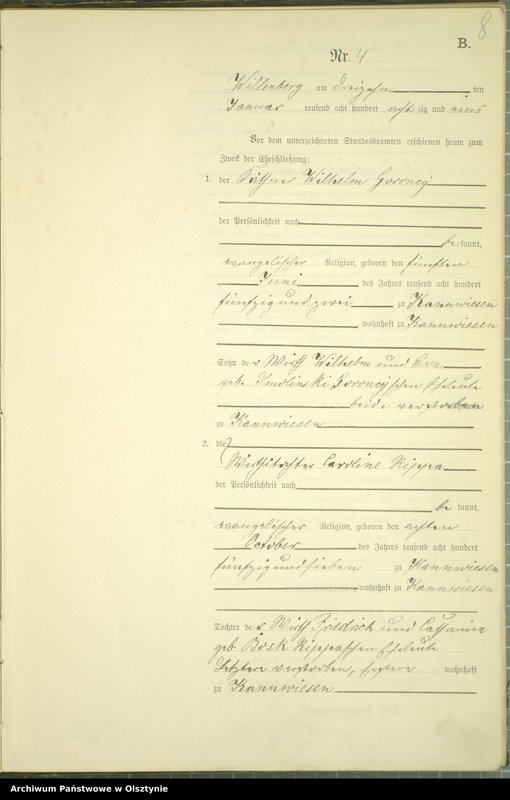 8
B.
Nr. 4
Willenberg am dreizehn ten
Januar tausend acht hundert acht zig und eins
Vor dem unterzeichneten Standesbeamten erschienen heute zum
Zweck der Eheschließung:
1. der Wilhelm Goroncy
der Persönlichkeit nach
be kannt,
evangelischer Religion, geboren den fünften
Juni des Jahres tausend acht hundert
fünfzig und zwei zu Kannwiesen
wohnhaft zu Kannwiesen
Sohn der Wirth Wilhelm und Eva
geb. Smolinski Goroncy'schen Eheleute
beide verstorben
zu Kannwiesen
2. die
Wirthstochter Caroline Rippa
der Persönlichkeit nach
be kannt,
evangelischer Religion, geboren den achten
October des Jahres tausend acht hundert
fünfzig und sieben zu Kannwiesen
wohnhaft zu Kannwiesen
Tochter der Wirth Friedrich und Catharina
geb. Bosk Rippaschen Eheleute
Letztere verstorben, Erstere wohnhaft
zu Kannwiesen
Archiwum Państwowe w Olsztynie